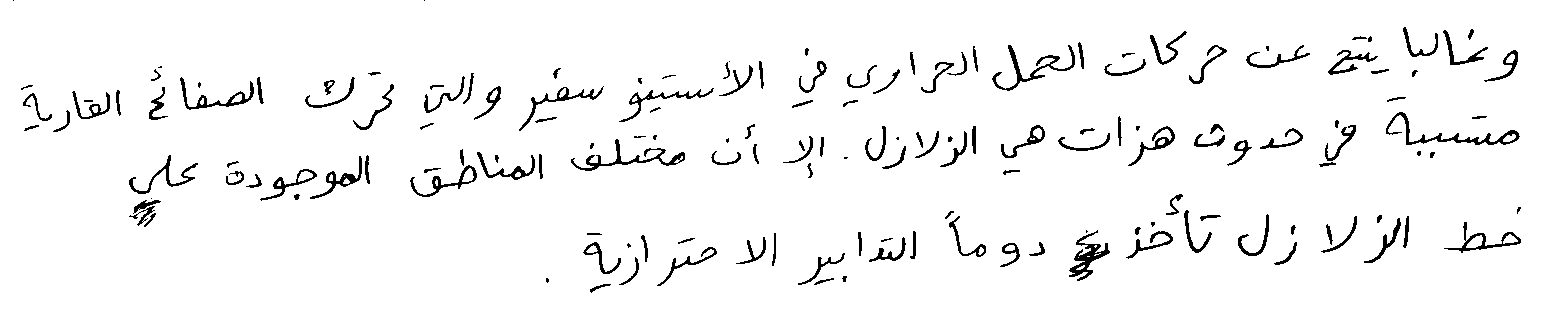 وغالبا ينتج عن حركات الحمل الحراري في الأستينو سفير والتي تحرك الصفائح القارية
متسببة في حدوث هزات هي الزلازل. إلا أن مختلف المناطق الموجودة على
خط الزلازل تأخذ دوماً التدابير الاحترازية.